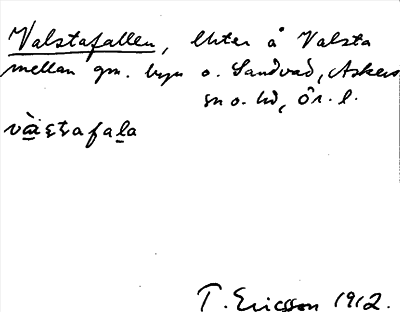 Valstafallen, lkter å Valsta
mellan gm. byn o. Sandvad, Askers
sn o. hd, Ör. l.
T. Ericsson 1912.